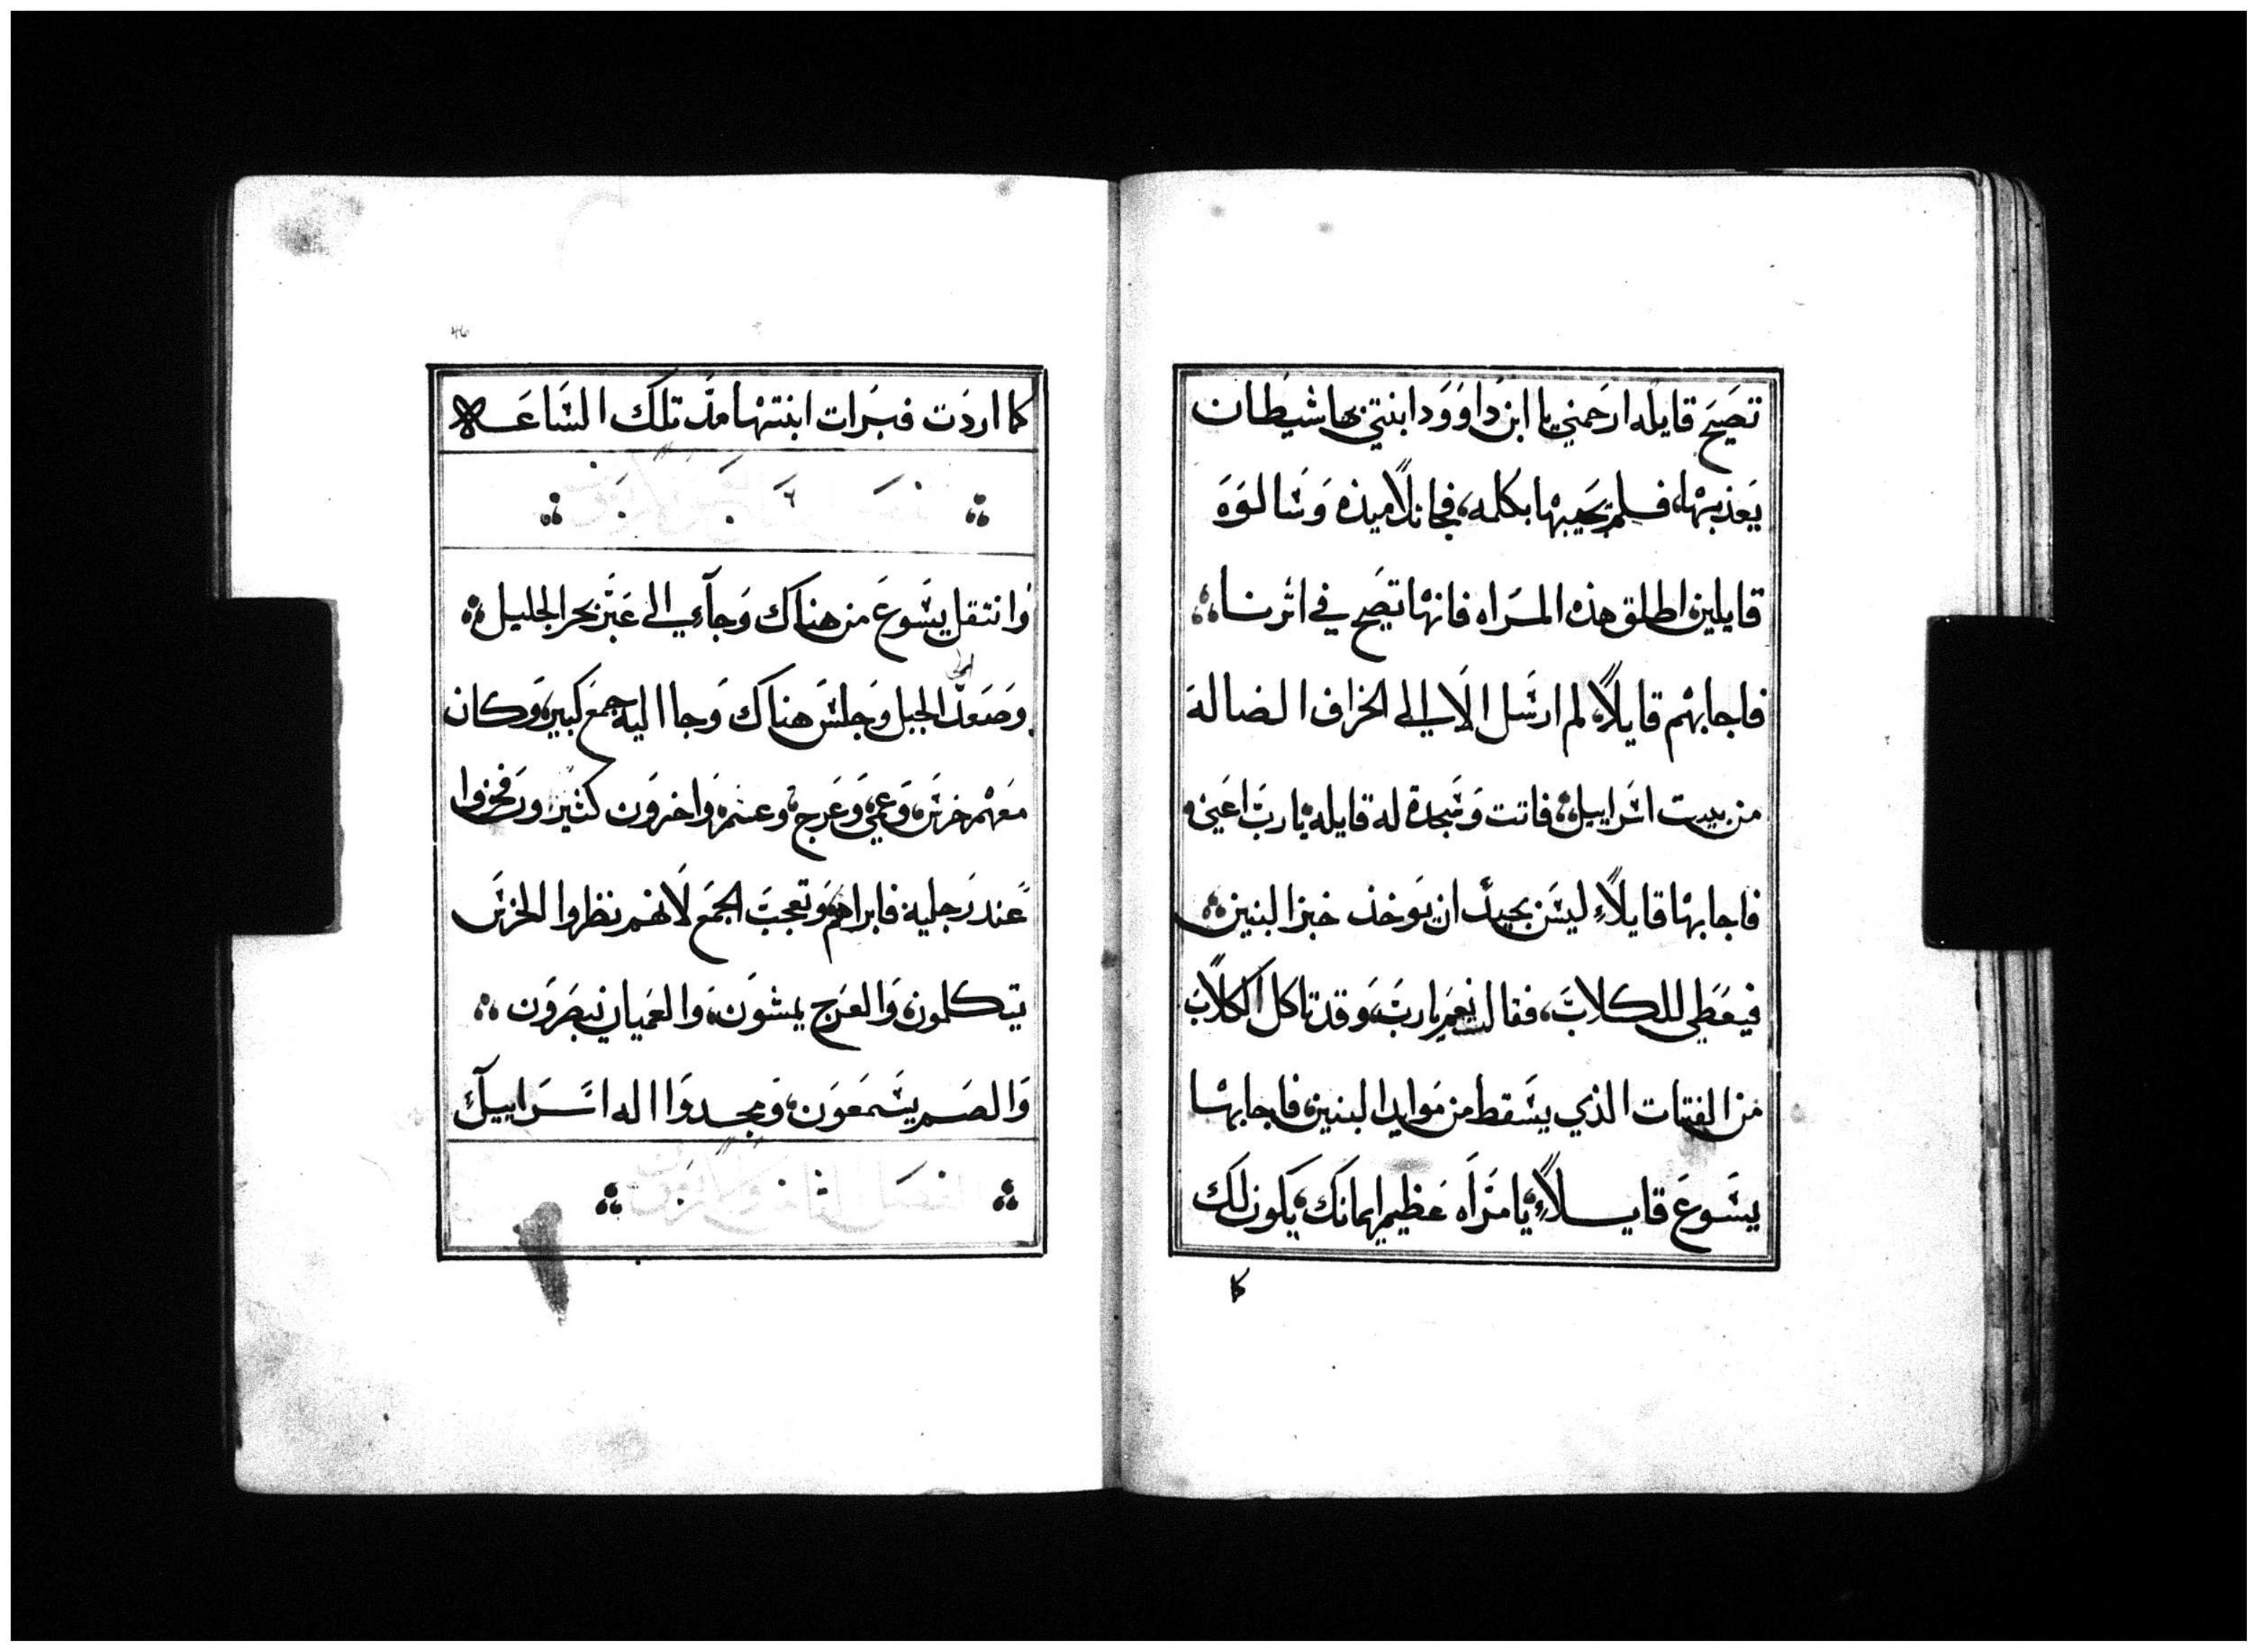 تصيح قايله ارحمني يا ابن داوود ابنتي بها شيطان
يعذبها، فلم يجيبها بكلمه، فجا تلاميذه وسالوه
قايلين اطلق هذه المراه فانها تصيح في اثرنا
فاجابهم قايلاً، لم ارسل الا الي الخراف الضاله
من بيت اسراييل، فاتت وسجدة له قايله يا رب اعني
فاجابها قايلاً ليس بجيد ان يوخذ خبز البنين
فيعطي للكلاب، فقالت نعم يا رب، وقد تاكل الكلاب
من الفتات الذي يسقط من موايد البنين، فاجابها
يسوع قايلاً، يا مراه عظيم ايمانك، يكون لك
كما
46
كما اردت فبرات ابنتها مذ تلك الساعه
وانتقل يسوع من هناك وجآء الي عبر بحر الجليل
وصعد الي الجبل وجلس هناك وجا اليه جمع كبير، وكان
معهم خرس، وعمي، وعرج، وعسم، واخرون كثير
عند رجليه فابراهم وتعجب الجمع لانهم نظروا الخرس
يتكلمون، والعرج يمشون، والعميان يبصرون
والصم يسمعون، ومجدوا اله اسراييل